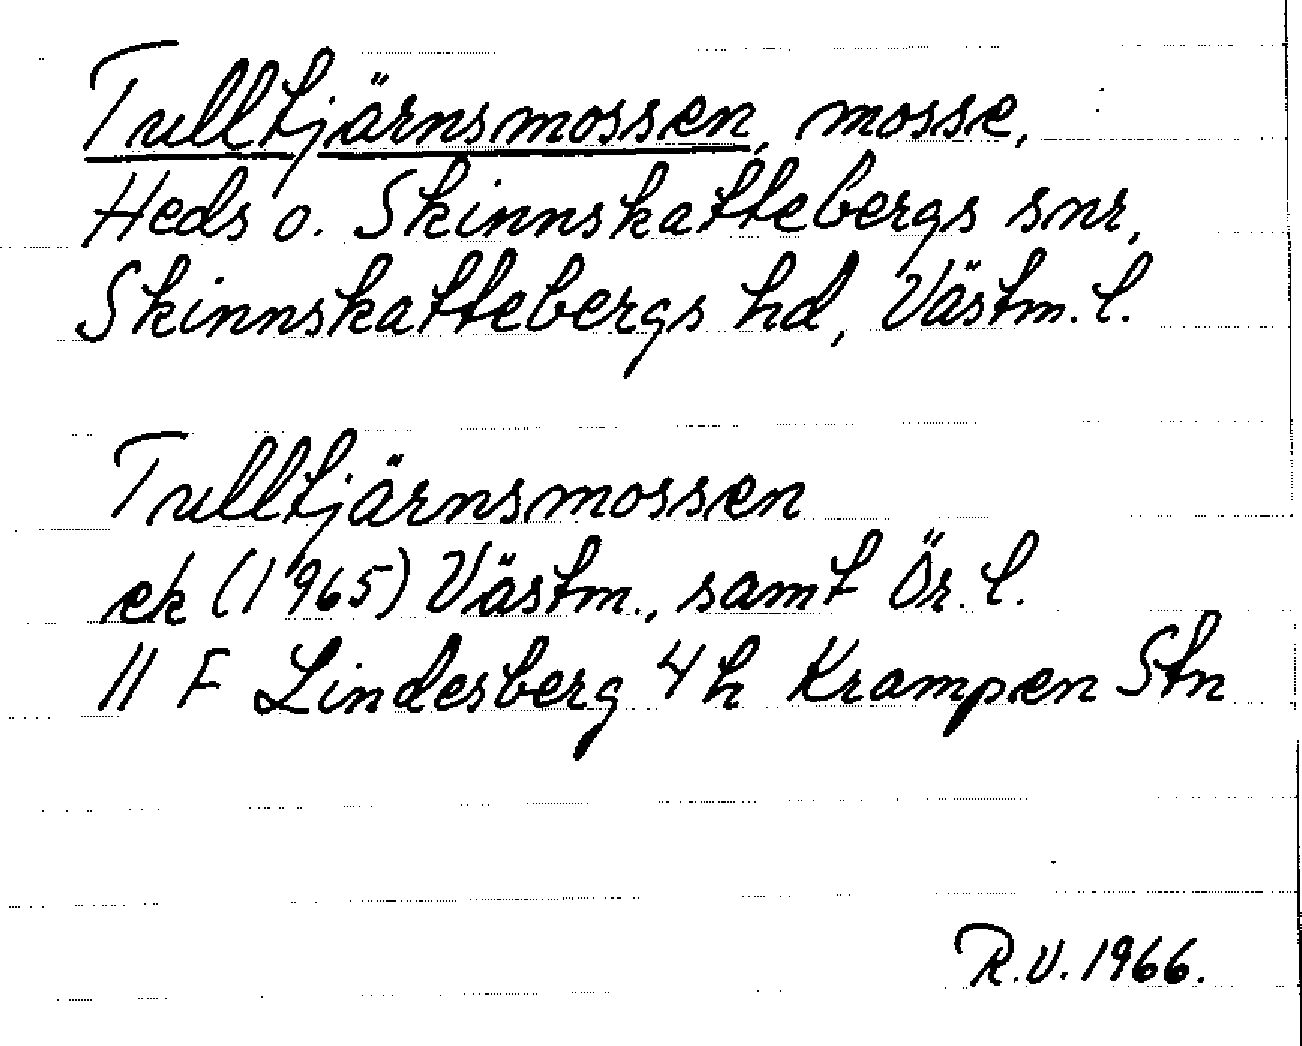 Tulltjärnsmossen, mosse,
Heds o. Skinnskattebergs snr,
Skinnskattebergs hd, Västm. l.
Tulltjärnsmossen
ek (1965) Västm., samt Ör. l.
11 F Lindesberg 4h Krampen Stn
R.V. 1966.